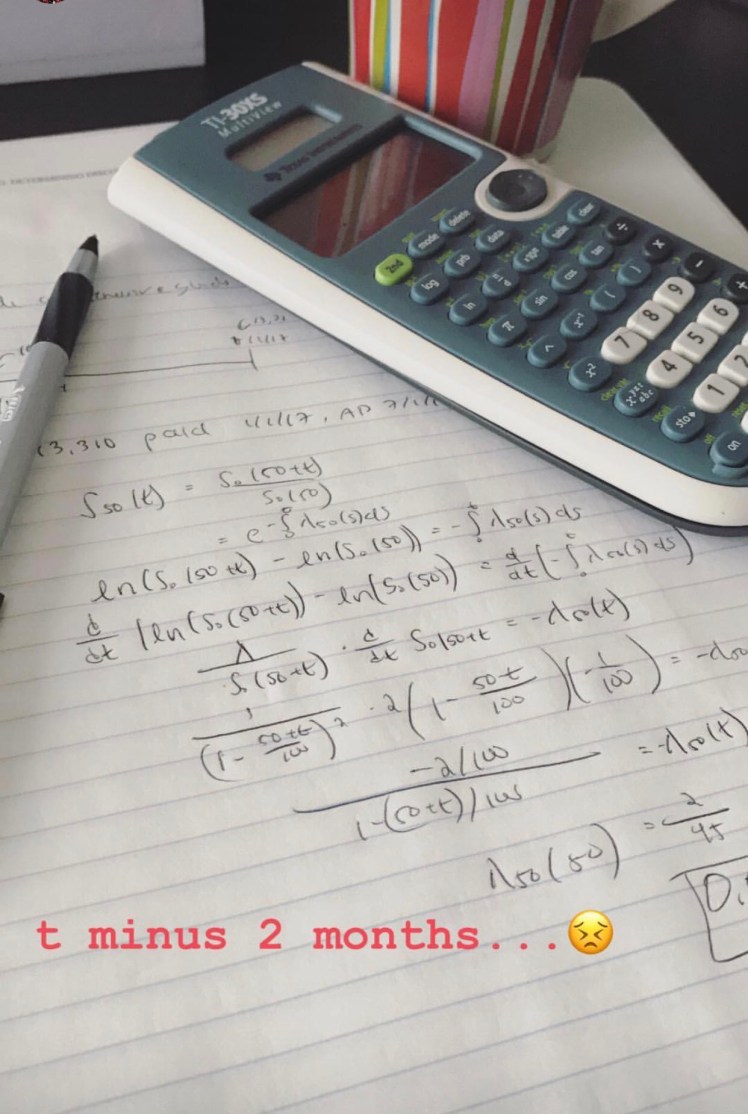 TI-30XS
MultiView
TEXAS INSTRUMENTS
2nd mode delete
log prb data
ln n/d ×10ⁿ table clear
π sin cos tan ÷
^ x⁻¹ ( ) ×
x² 7 8 9 −
4 5 6 +
sto▸ 1 2
on
13,310 paid 1/1/17, AP 7/1/1
S₅₀(t) = S₀(50+t)/S₀(50)
= e^-∫₀ᵗ λ₅₀(s)ds
ln(S₀(50+t)) - ln(S₀(50)) = -∫₀ᵗ λ₅₀(s)ds
d/dt (ln(S₀(50+t)) - ln(S₀(50)) = d/dt(-∫₀ᵗ λ₅₀(s)ds)
1/S₀(50+t) · d/dt S₀(50+t = -λ₅₀(t)
1/(1-50+t/100)² · 2(1-50t/100)(-1/100) = -λ₅₀
-2/100 / 1-(50+t)/100 = -λ₅₀(t)
λ₅₀(50) = 2/45
0.
t minus 2 months...😣